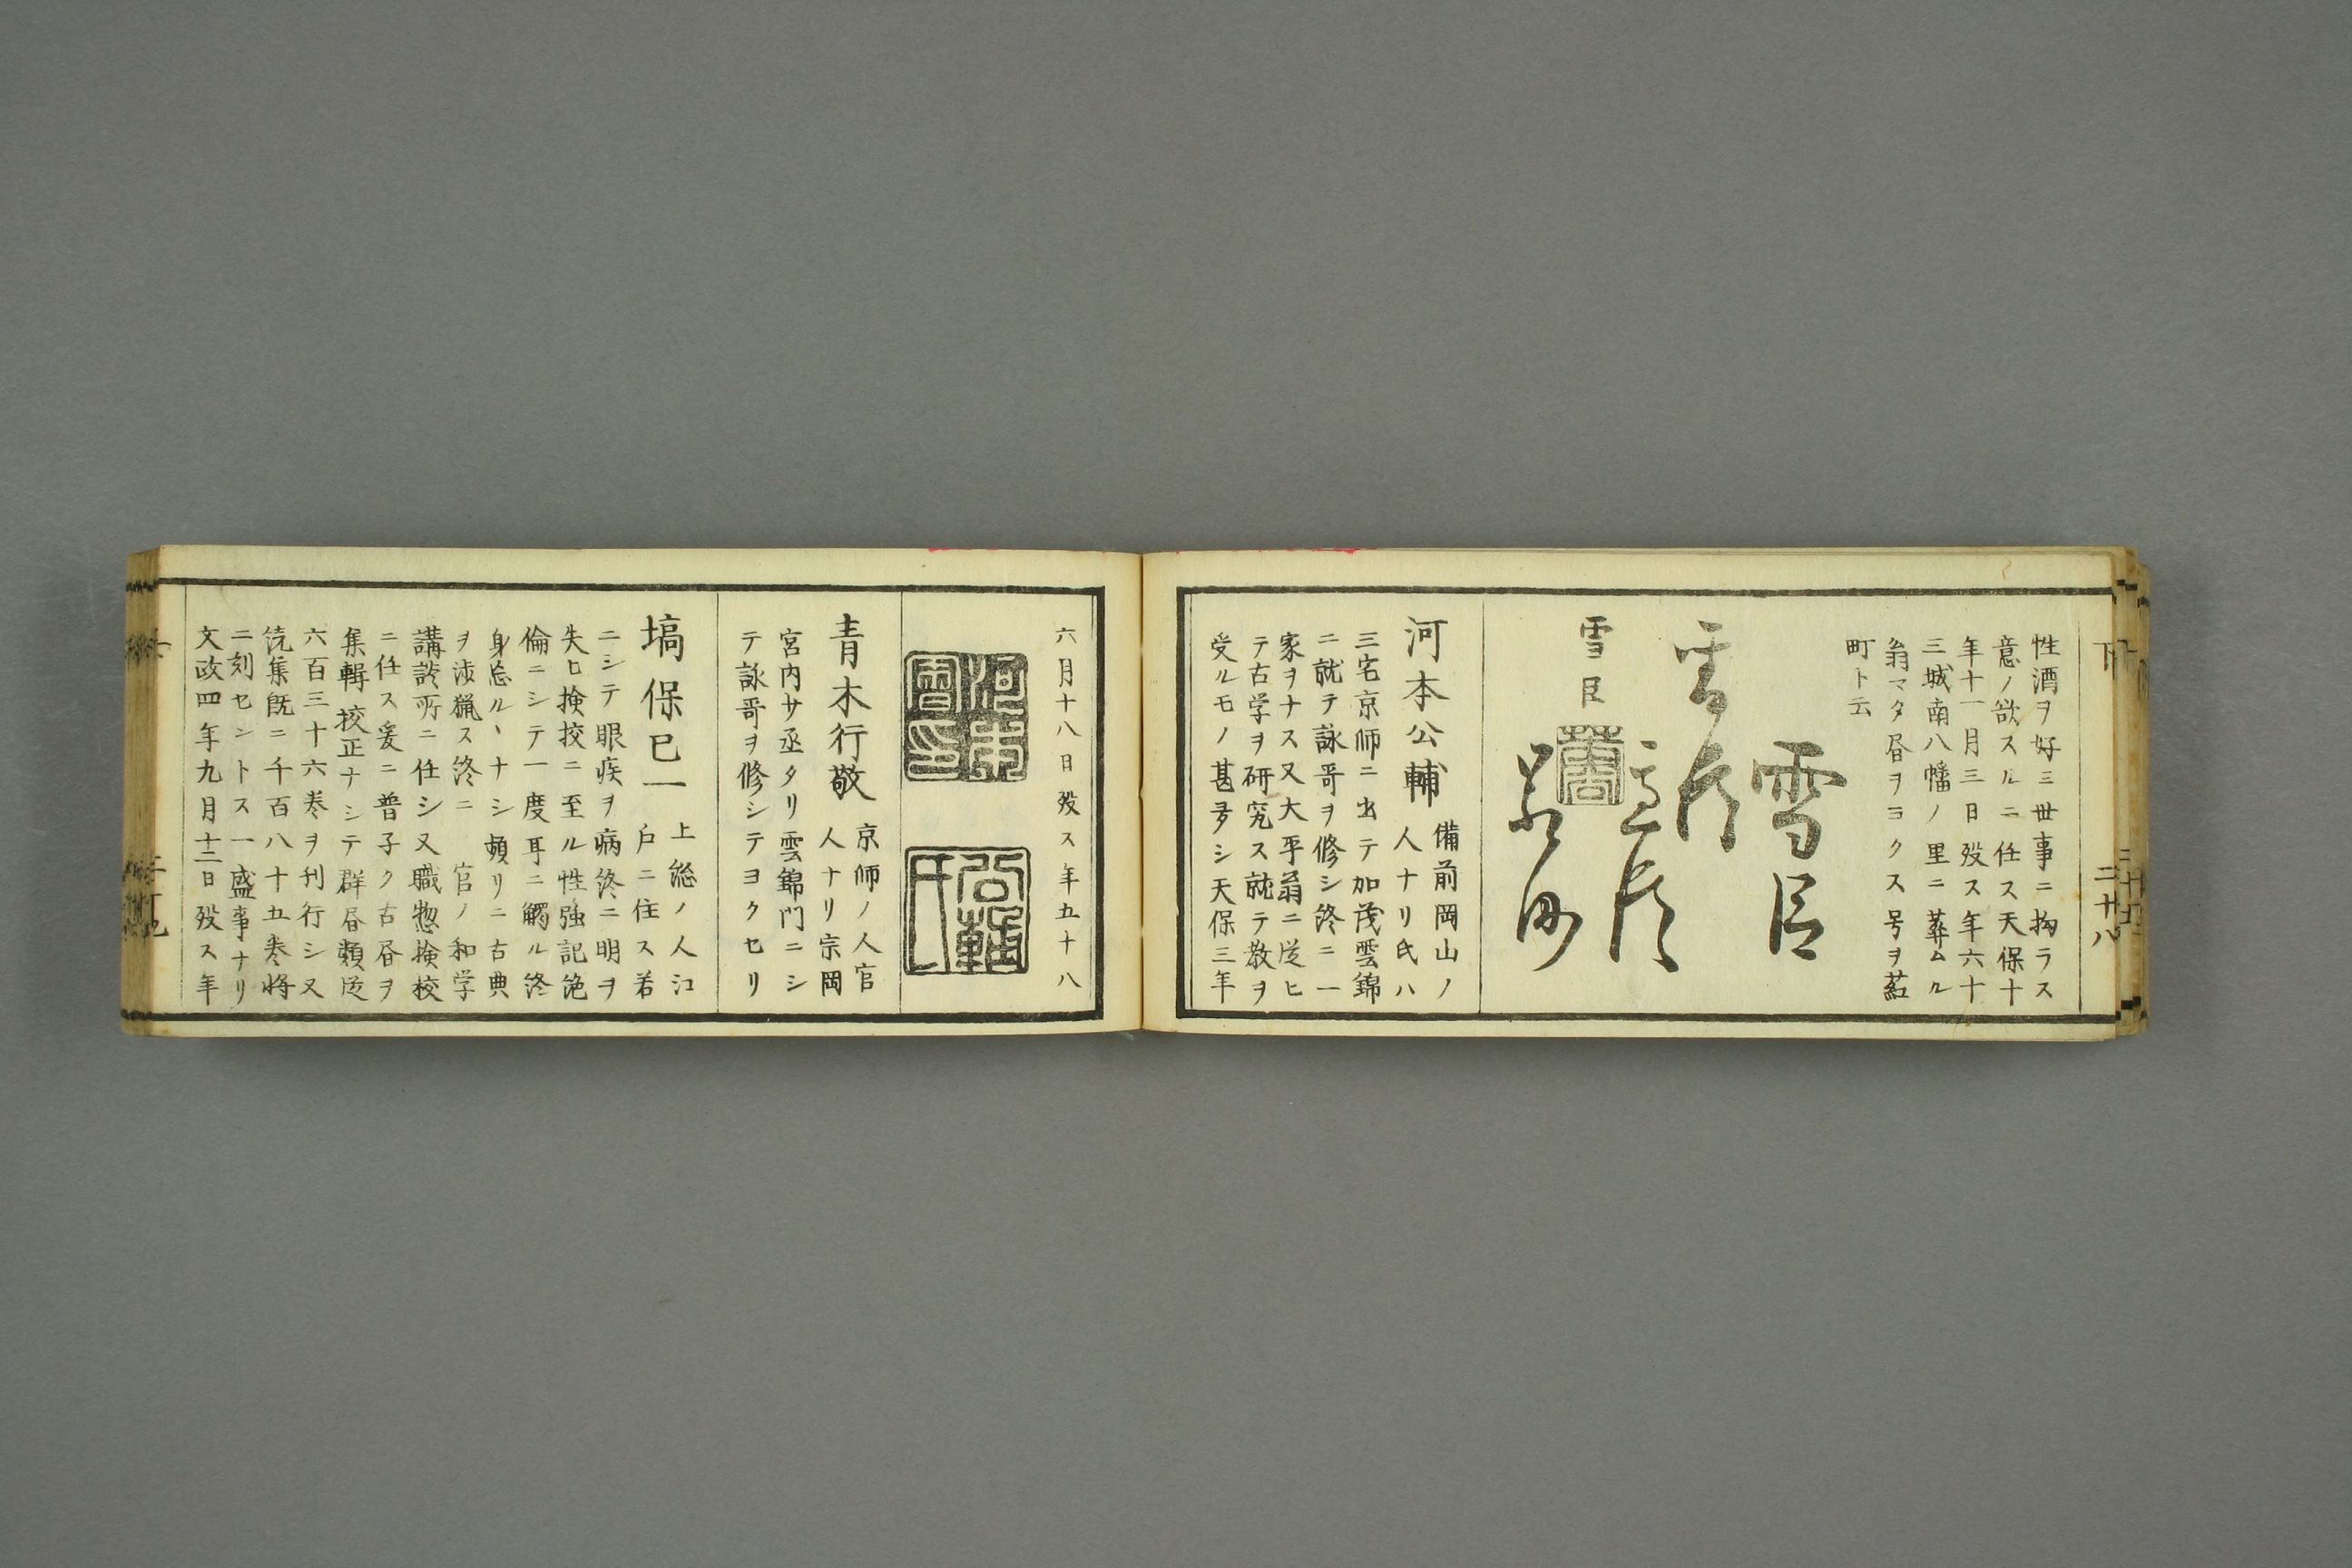 下
二十八
性酒ヲ好ミ世事ニ拘ラス
意ノ欲スルニ任ス天保十
年十一月三日歿ス年六十
三城南八幡ノ里ニ葬ムル
翁マタ昼ヲヨクス号ヲ蕋
町ト云
雪臣
雪臣
河本公輔
備前岡山ノ
人ナリ氏ハ
三宅京師ニ出テ加茂雲錦
ニ就テ詠哥ヲ修シ終ニ一
家ヲナス又大平翁ニ従ヒ
テ古学ヲ研究ス就テ教ヲ
受ルモノ甚多シ天保三年
六月十八日歿ス年五十八
青木行敬
京師ノ人官
人ナリ宗岡
宮内少丞タリ雲錦門ニシ
テ詠哥ヲ修シテヨクセリ
塙保已一
上総ノ人江
戸ニ住ス若
ニシテ眼疾ヲ病終ニ明ヲ
失ヒ検挍ニ至ル性強記絶
倫ニシテ一度耳ニ觸ル終
身忘ルヽナシ頻リニ古典
ヲ渉猟ス終ニ 官ノ和学
講談所ニ任シ又職惣検校
ニ任ス爰ニ普子ク古昼ヲ
集輯挍正ナシテ群昼類従
六百三十六巻ヲ刊行シ又
続集既ニ千百八十五巻将
ニ刻セントス一盛事ナリ
文政四年九月十二日歿ス年